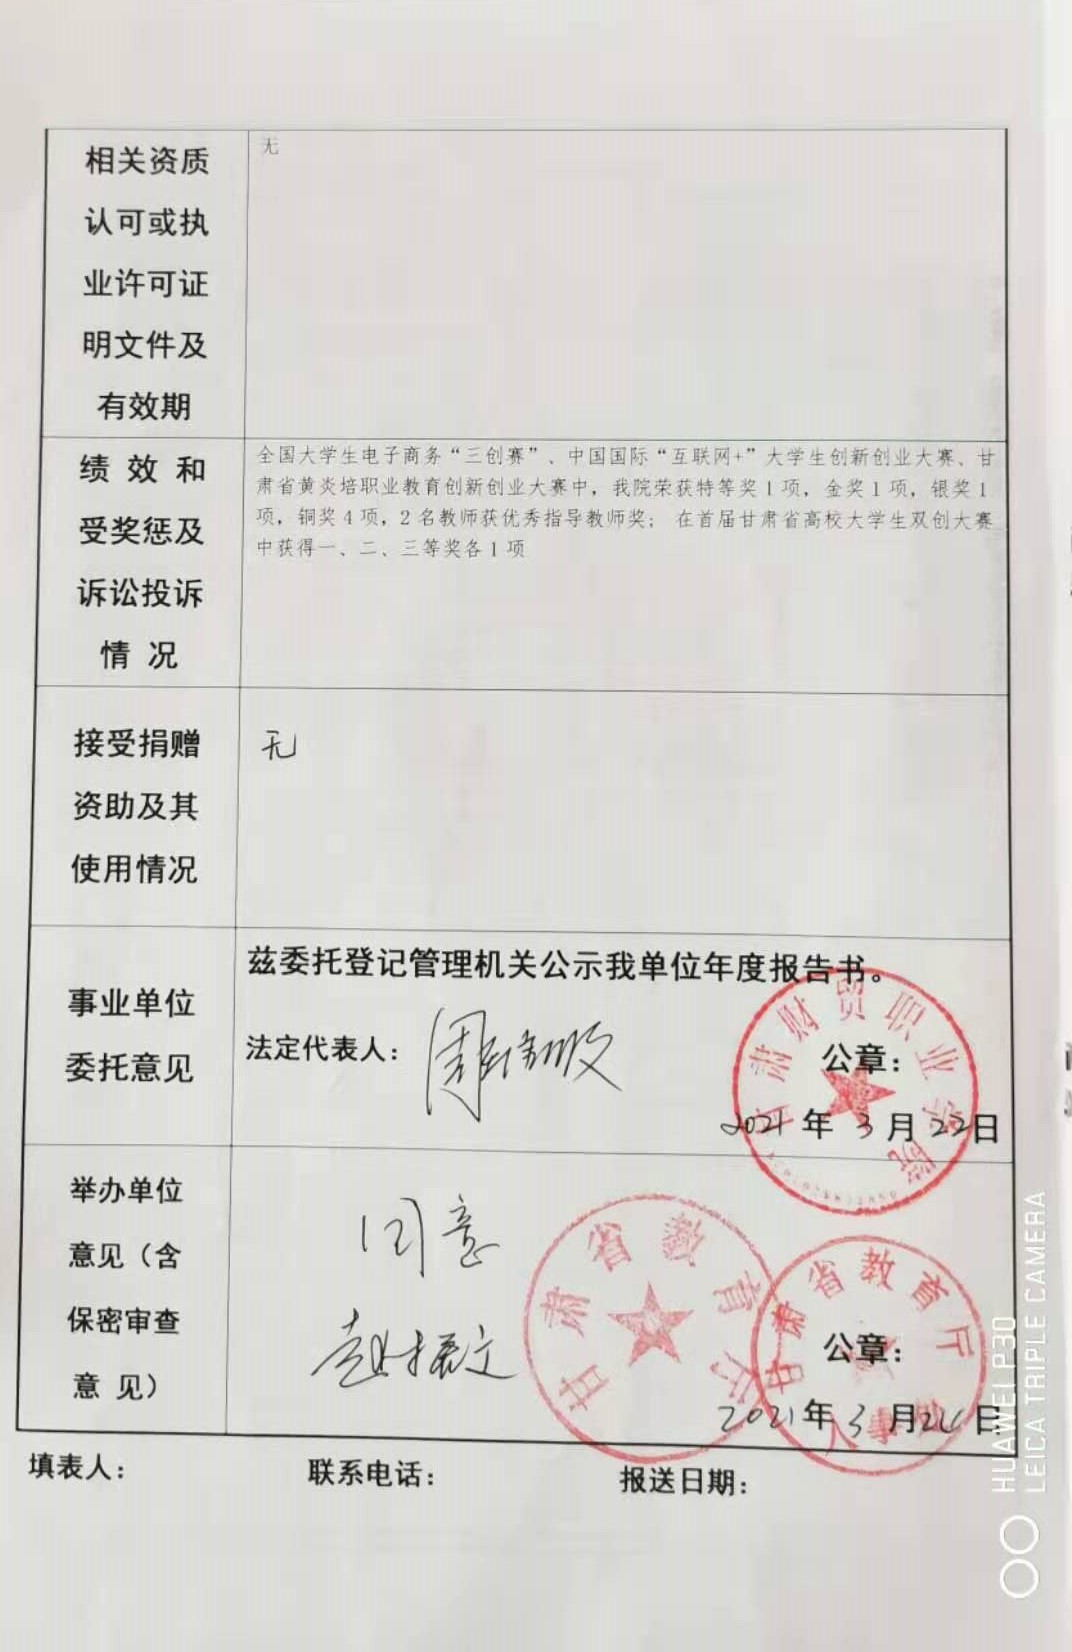 相关资质
认可或执
业许可证
明文件及
有效期
无
绩 效 和
受奖惩及
诉讼投诉
情 况
全国大学生电子商务“三创赛”、中国国际“互联网+”大学生创新创业大赛、甘
肃省黄炎培职业教育创新创业大赛中，我院荣获特等奖1项，金奖1项，银奖1
项，铜奖4项，2名教师获优秀指导教师奖； 在首届甘肃省高校大学生双创大赛
中获得一、二、三等奖各1项
接受捐赠
资助及其
使用情况
无
事业单位
委托意见
兹委托登记管理机关公示我单位年度报告书。
法定代表人：
公章：
2021年3月22日
甘肃财贸职业学院
举办单位
意见（含
保密审查
意 见）
同意
赵振文
甘肃省教育厅
甘肃省教育厅
人事
公章：
2021年3月 日
填表人： 联系电话： 报送日期：
HUAWEI P30
LEICA TRIPLE CAMERA